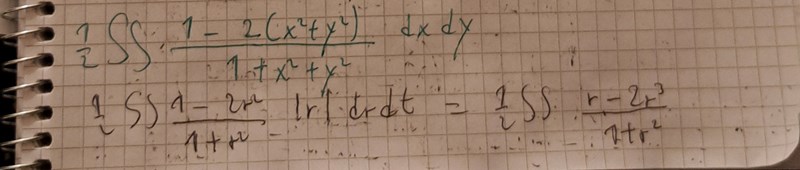 1/2 ∬ (1 - 2(x²+y²))/(1 + x² + y²) dx dy
1/2 ∬ (1 - 2r²)/(1 + r²) |r| dr dt = 1/2 ∬ (r - 2r³)/(1+r²)